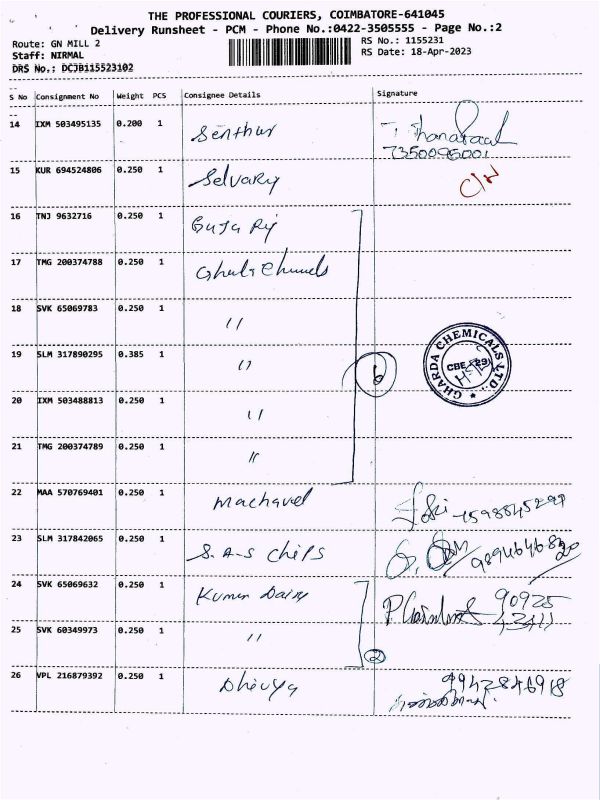 THE PROFESSIONAL COURIERS, COIMBATORE-641045
Delivery Runsheet - PCM - Phone No.:0422-3505555 - Page No.:2
Route: GN MILL 2 RS No.: 1155231
Staff: NIRMAL RS Date: 18-Apr-2023
DRS No.: DCJB115523102
S No Consignment No Weight PCS Consignee Details Signature
14 IXM 503495135 0.200 1 Senthur
7350096001
15 KUR 694524806 0.250 1 Selvaraj
16 TNJ 9632716 0.250 1
17 TMG 200374788 0.250 1
18 SVK 65069783 0.250 1 "
19 SLM 317890295 0.385 1 " 6 GHARDA CHEMICALS LTD. CBE
20 IXM 503488813 0.250 1 "
21 TMG 200374789 0.250 1 "
22 MAA 570769401 0.250 1
23 SLM 317842065 0.250 1 S.A-S Chips
24 SVK 65069632 0.250 1 Kumar Dairy 90925
25 SVK 60349973 0.250 1 " 2
26 VPL 216879392 0.250 1 Dhivya 9942846918